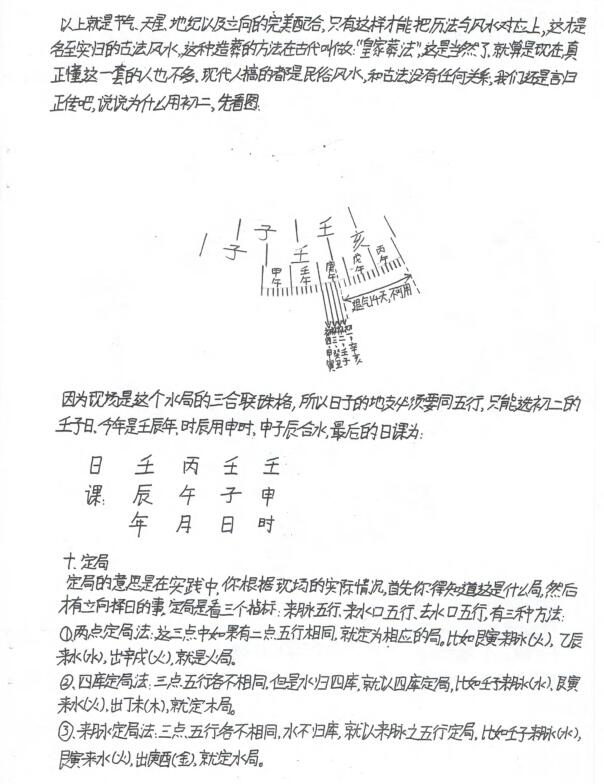 以上就是节气、天星、地纪以及立向的完美配合,只有这样才能把历法与风水对应上,这才是
名至实归的古法风水,这种造葬的方法在古代叫做:"皇家葬法",这是当然了,就算是现在真
正懂这一套的人也不多,现代人搞的都是民俗风水,和古法没有任何关系,我们还是言归
正传吧,说说为什么用初二,先看图:
子 壬
子 壬 亥
甲午 壬午 庚午 戊午 丙午
退气14天,不可用
初一,辛亥
初二,壬子
因为现场是这个水局的三合联珠格,所以日子的地支必须要同五行,只能选初二的
壬子日,今年是壬辰年,时辰用申时,申子辰合水,最后的日课为:
日 壬 丙 壬 壬
课: 辰 午 子 申
年 月 日 时
十、定局
定局的意思是在实践中,你根据现场的实际情况,首先你得知道这是什么局,然后
才有立向择日的事,定局是看三个指标:来脉五行、来水口五行、去水口五行,有三种方法:
①、两点定局法:这三点中如果有二点五行相同,就定为相应的局。比如艮寅来脉(火),乙辰
来水(水),出辛戌(火),就是火局。
②、四库定局法:三点五行各不相同,但是水归四库,就以四库定局,比如壬子来脉(水),艮寅
来水(火),出丁未(木),就定木局。
③、来脉定局法:三点五行各不相同,水不归库,就以来脉之五行定局,比如壬子来脉(水),
艮寅来水(火),出庚酉(金),就定水局。